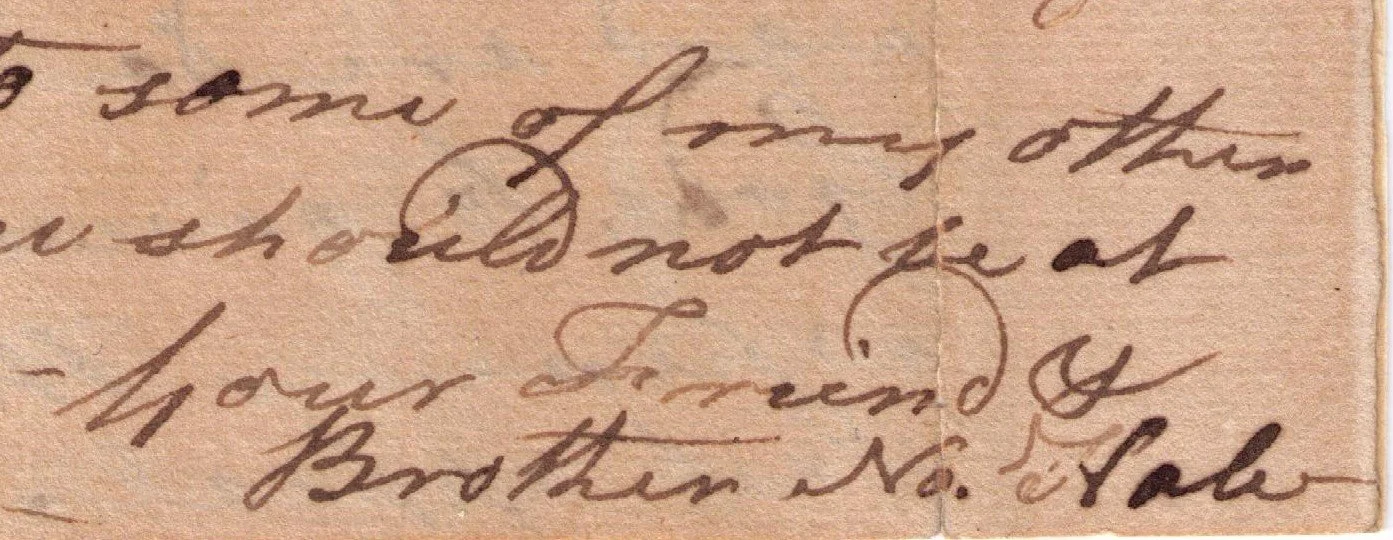 to some of my other
should not be at
- your Friend &
Brother No.